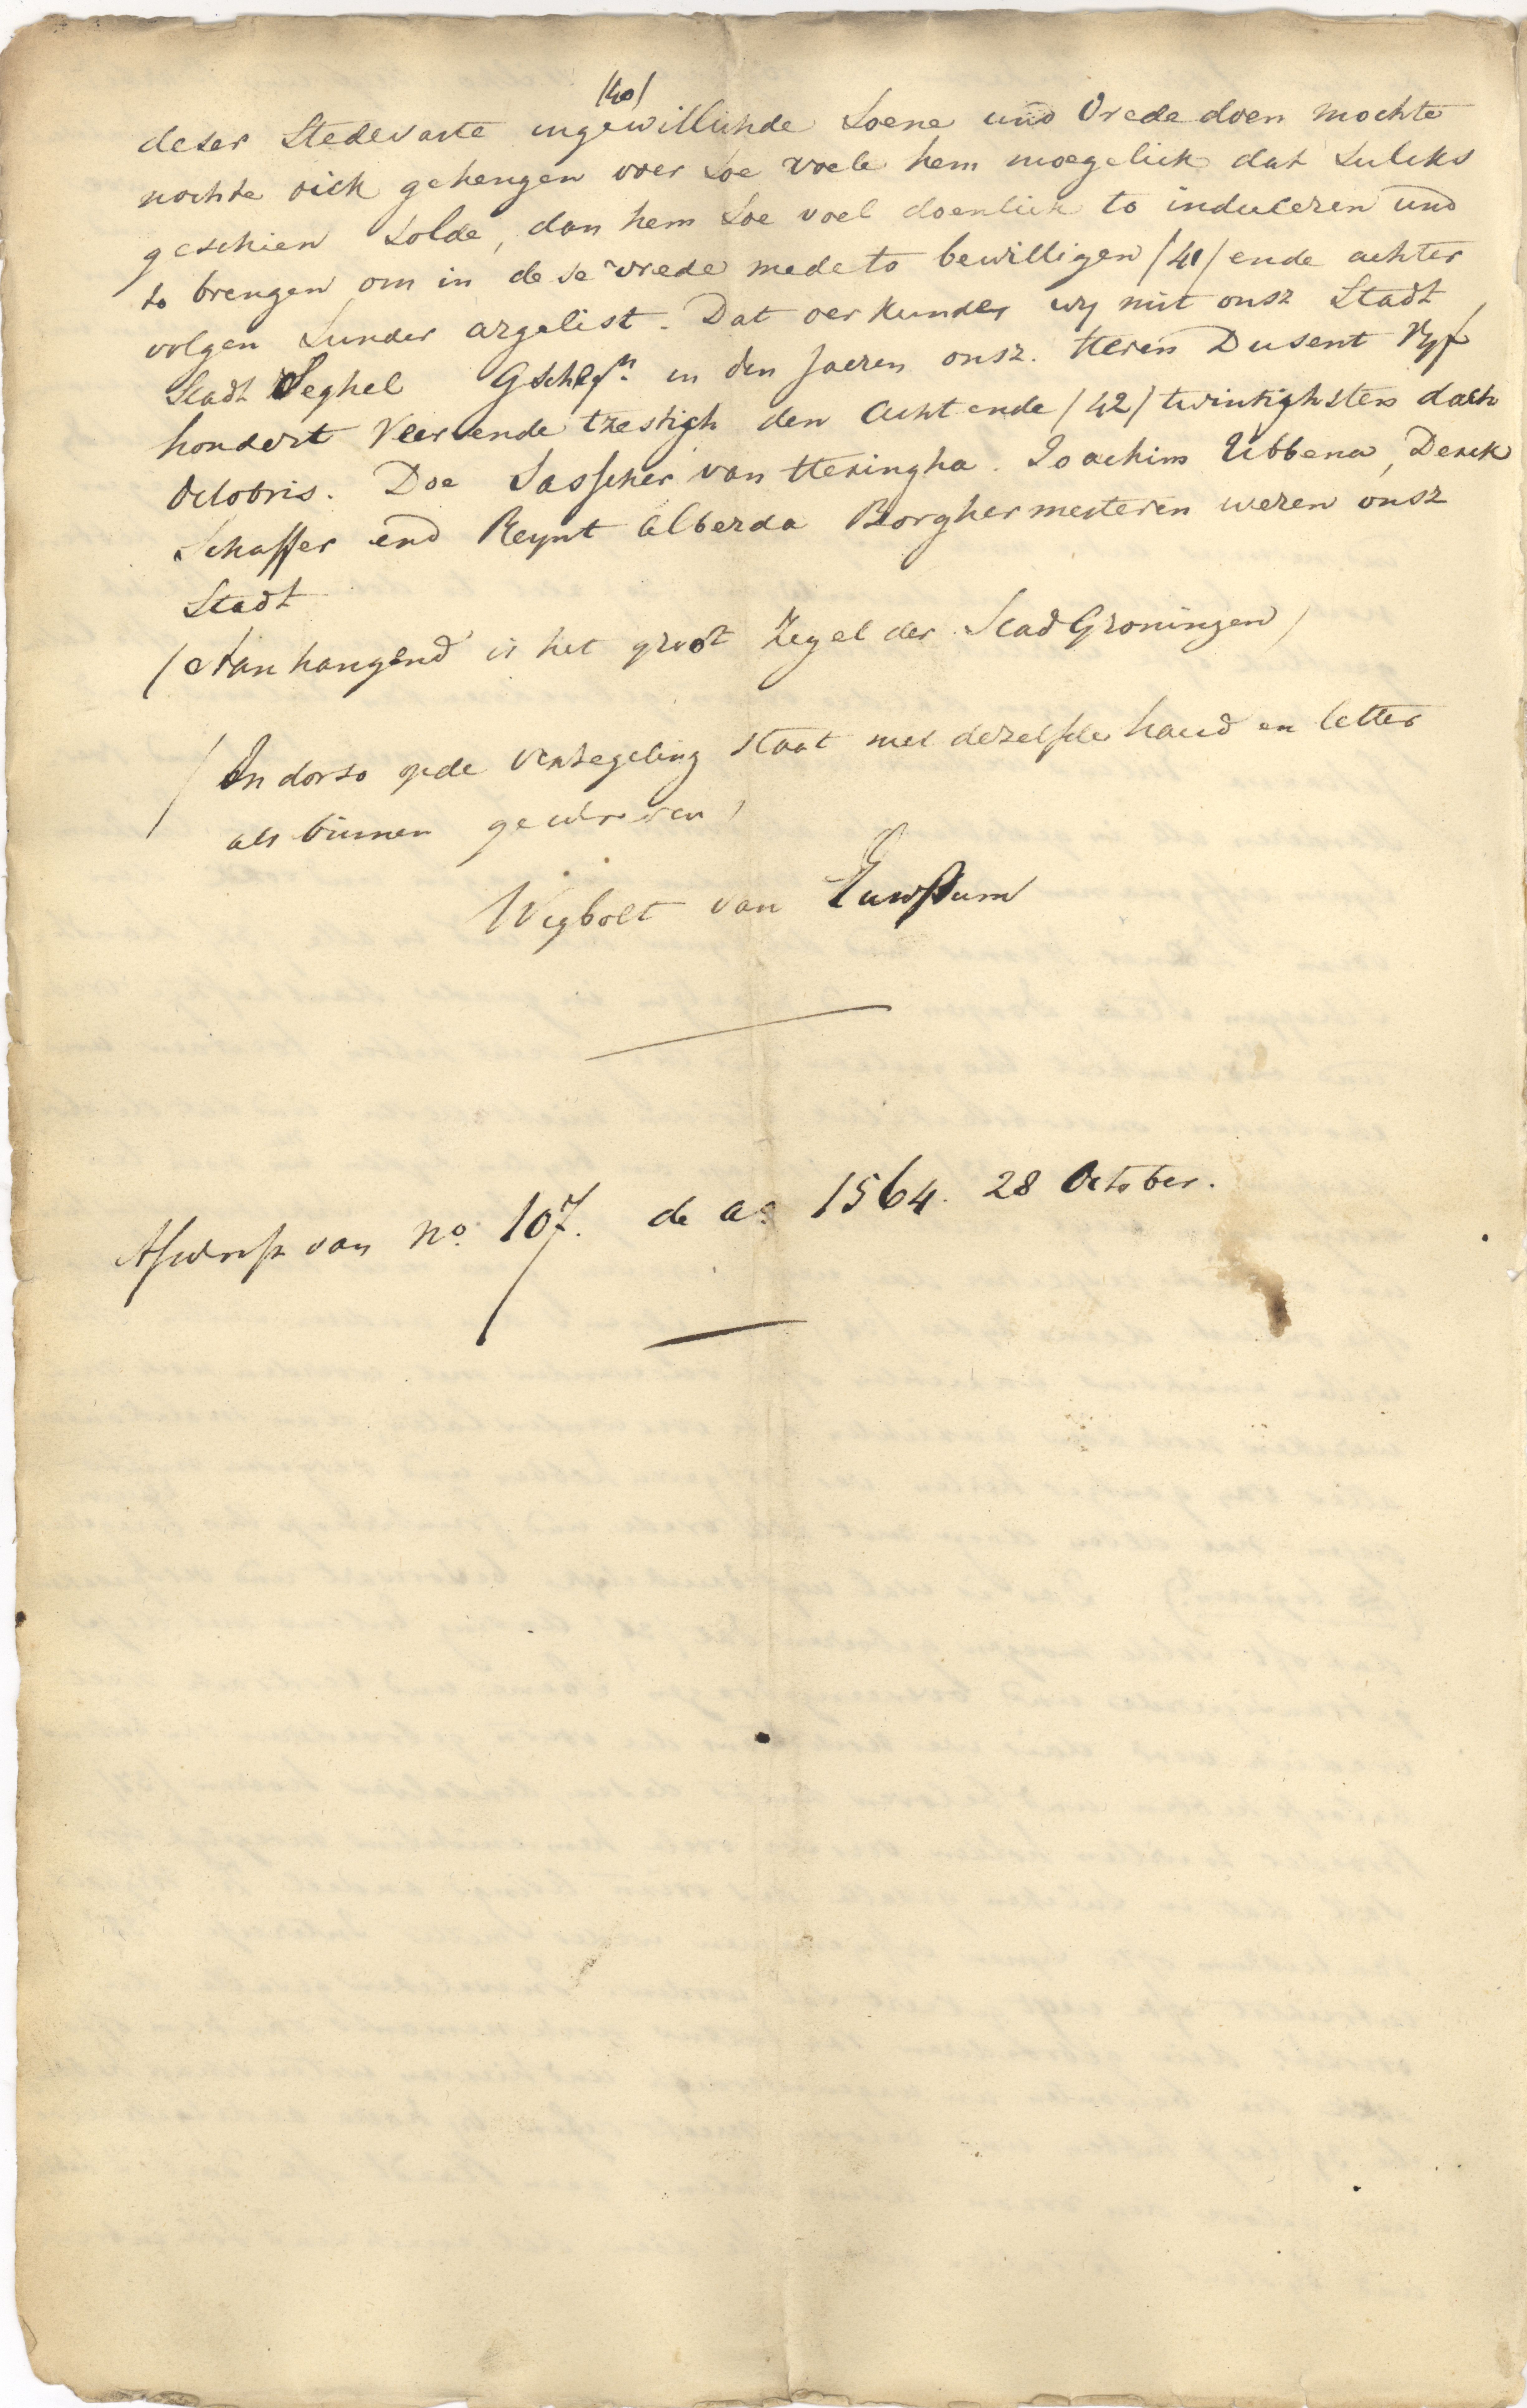 /40/
deser Stedevaste ingewillichde Soene und Vrede doen mochte
nochte oick gehengen voer soe voele hem moegelick dat sulcks
geschien solde, dan hem soe voel doenlick to induceren und
to brengen om in dese vrede mede to bewilligen /41/ ende achter
volgen sunder argelist. Dat oerkunden wy mit onsz Stadt
Stadt Seghel Gschev.n in den Jaeren onsz. Heren Dusent Vyf
hondert Veer ende tzestigh den Acht ende /42/ twintighsten dach
Octobris. Doe Sasscher van Heringha. Joachim Ubbena, Derck
Schaffer end Reynt Alberda Borghermesteren weren onsz
Stadt
/ Aanhangend is het groot Zegel der Stad Groningen /
/ In dorso op de verzegeling staat met dezelfde hand en letter
als binnen geschreven /
Wigbolt van Euwssum
Afschrift van No. 107. de ao 1564. 28 October.